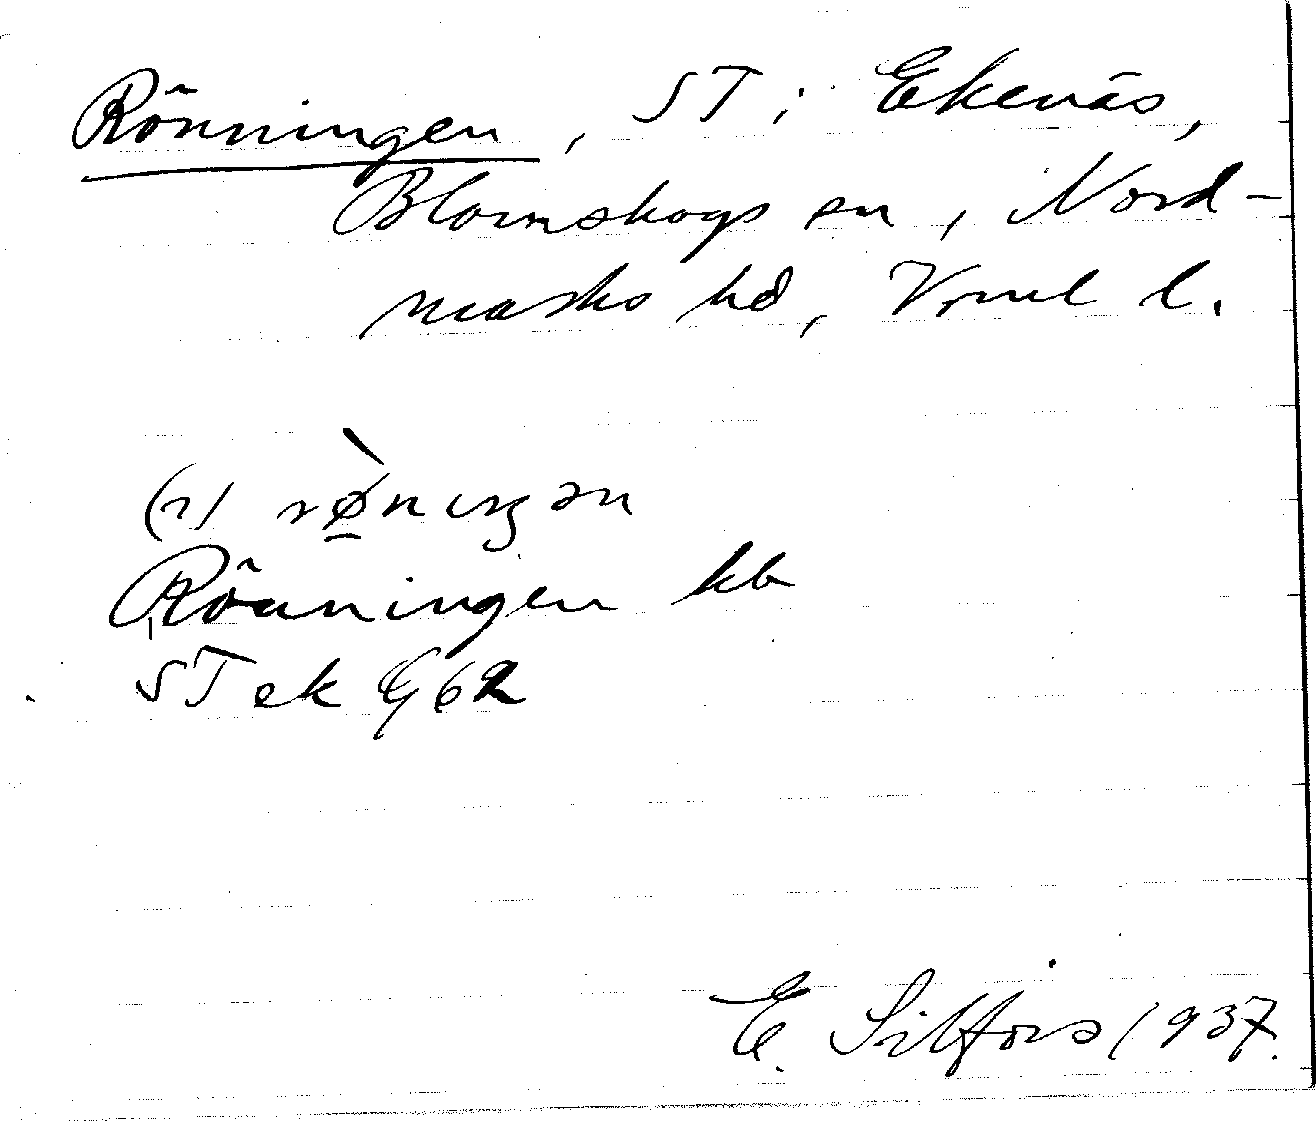 Rönningen, ST i Ekenäs,
Blomskogs sn, Nord-
marks hd, Vrml l.
(2) rø̀niŋən
Rönningen kb
ST ek G62
E. Silfors 1937.